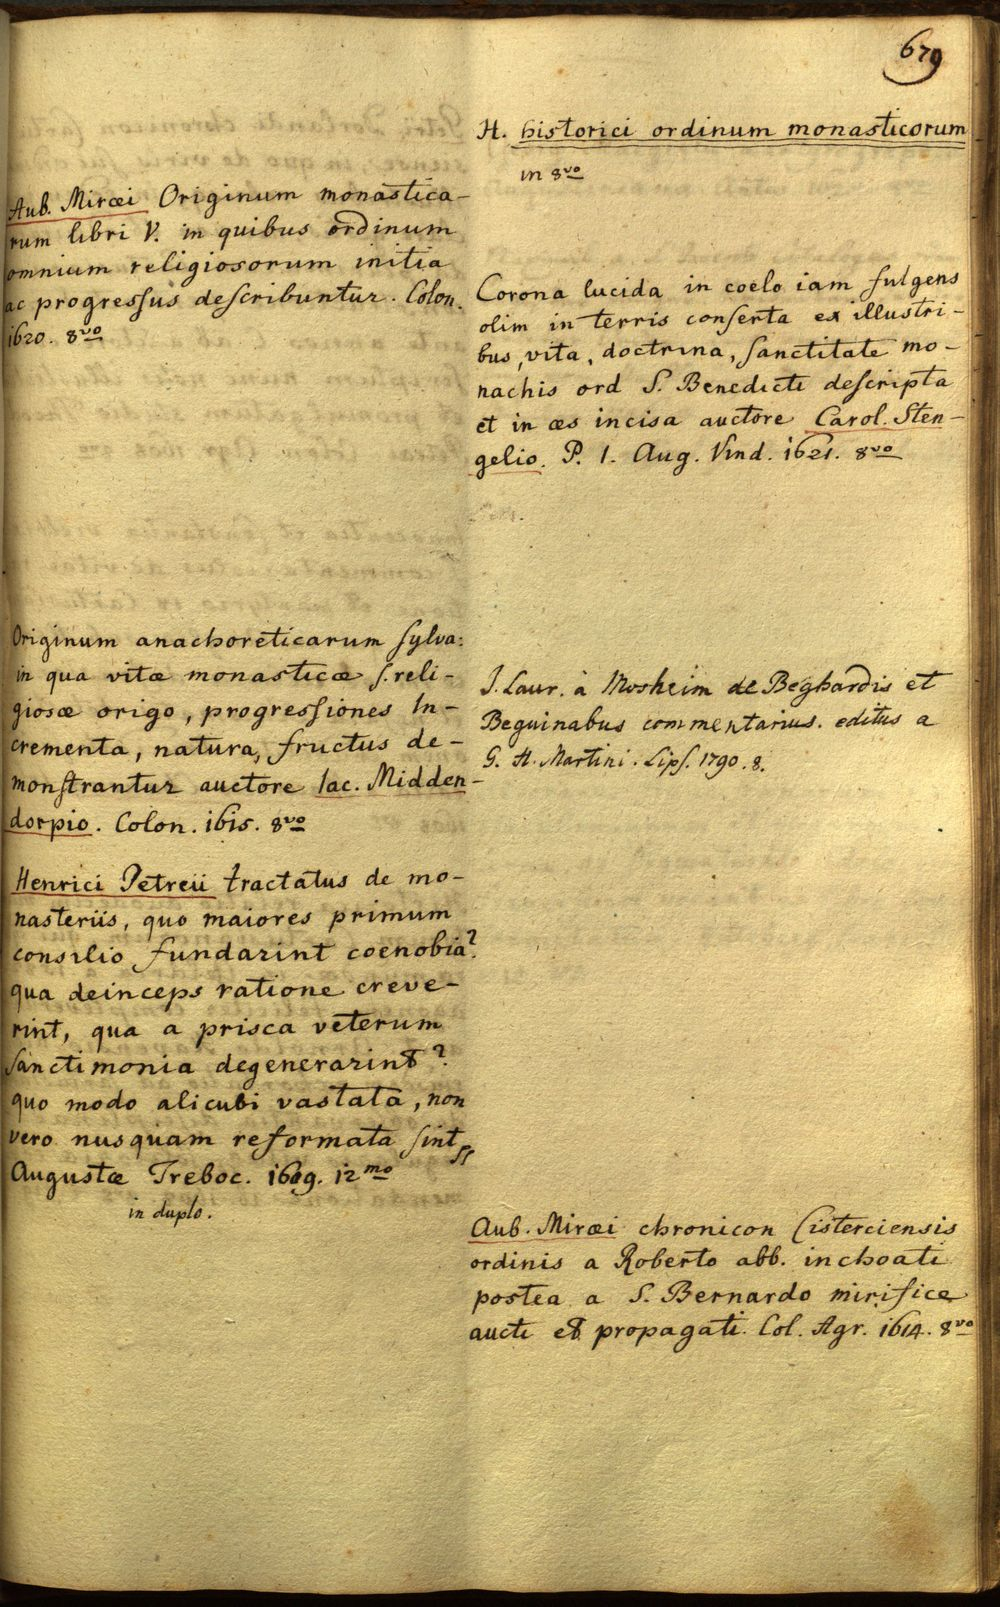 679
H. historici ordinum monasticorum
in 8vo
Aub. Miræi Originum monastica-
rum libri V. in quibus ordinum
omnium religiosorum initia
ac progreſſus deſcribuntur. Colon.
1620. 8vo
Originum anachoreticarum ſylva:
in qua vitæ monasticæ ſ. reli-
giosæ origo, progreſſiones In-
crementa, natura, fructus de-
monſtrantur auctore Iac. Midden-
dorpio. Colon. 1615. 8vo
Henrici Petreii tractatus de mo-
nasteriis, quo maiores primum
consilio fundarint coenobia?
qua deinceps ratione creve-
rint, qua a prisca veterum
ſanctimonia degenerarint?
quo modo alicubi vastata, non
vero nusquam reformata ſint
Augustæ Treboc. 1609. 12mo
in duplo.
Corona lucida in coelo iam fulgens
olim in terris conſerta ex illustri-
bus, vita, doctrina, ſanctitate mo-
nachis ord S. Benedicti deſcripta
et in æs incisa auctore Carol. Sten-
gelio. P. 1. Aug. Vind. 1621. 8vo
J. Laur. à Mosheim de Beghardis et
Beguinabus commentarius. editus a
G. H. Martini. Lipſ. 1790. 8.
Aub. Miræi chronicon Cisterciensis
ordinis a Roberto abb. inchoati
postea a S. Bernardo mirifice
aucti et propagati. Col. Agr. 1614. 8vo